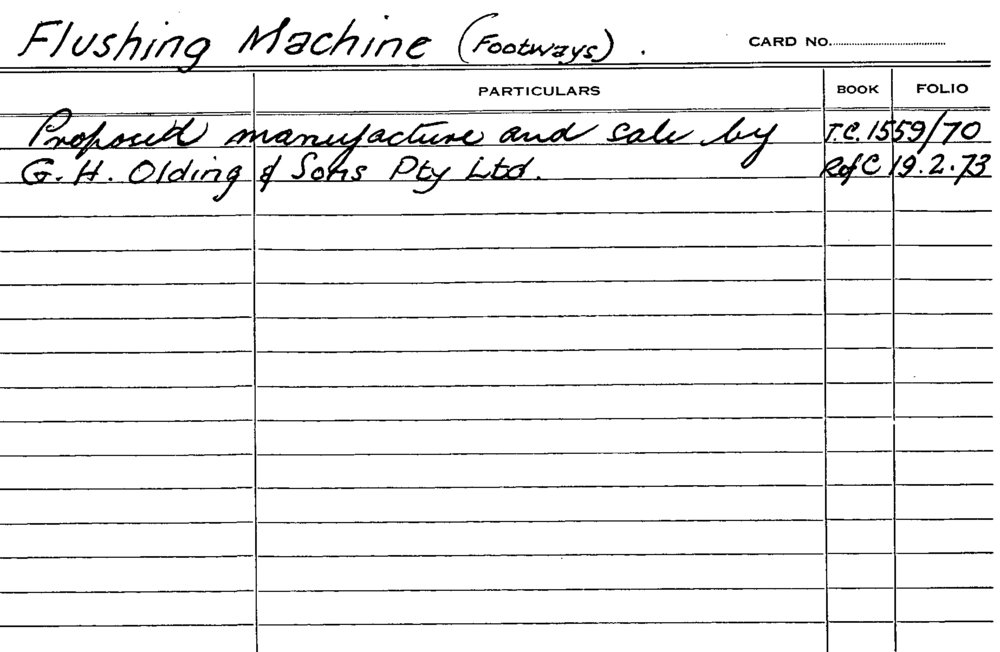 Flushing Machine (Footways). CARD NO.
PARTICULARS BOOK FOLIO
Proposed manufacture and sale by T.C. 1559/70
G. H. Olding & Sons Pty Ltd. Rof C 19.2.73